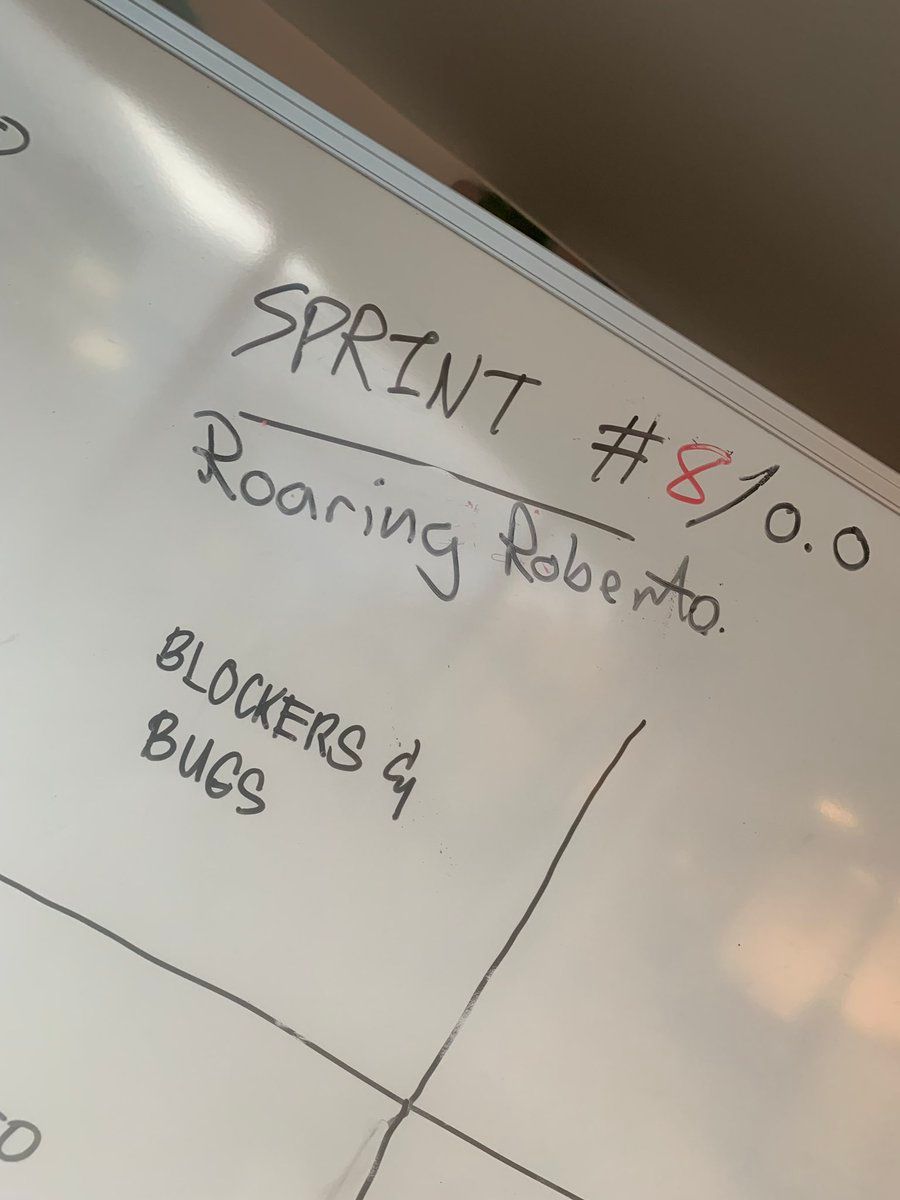 SPRINT #8/0.0
Roaring Roberto.
BLOCKERS &
BUGS